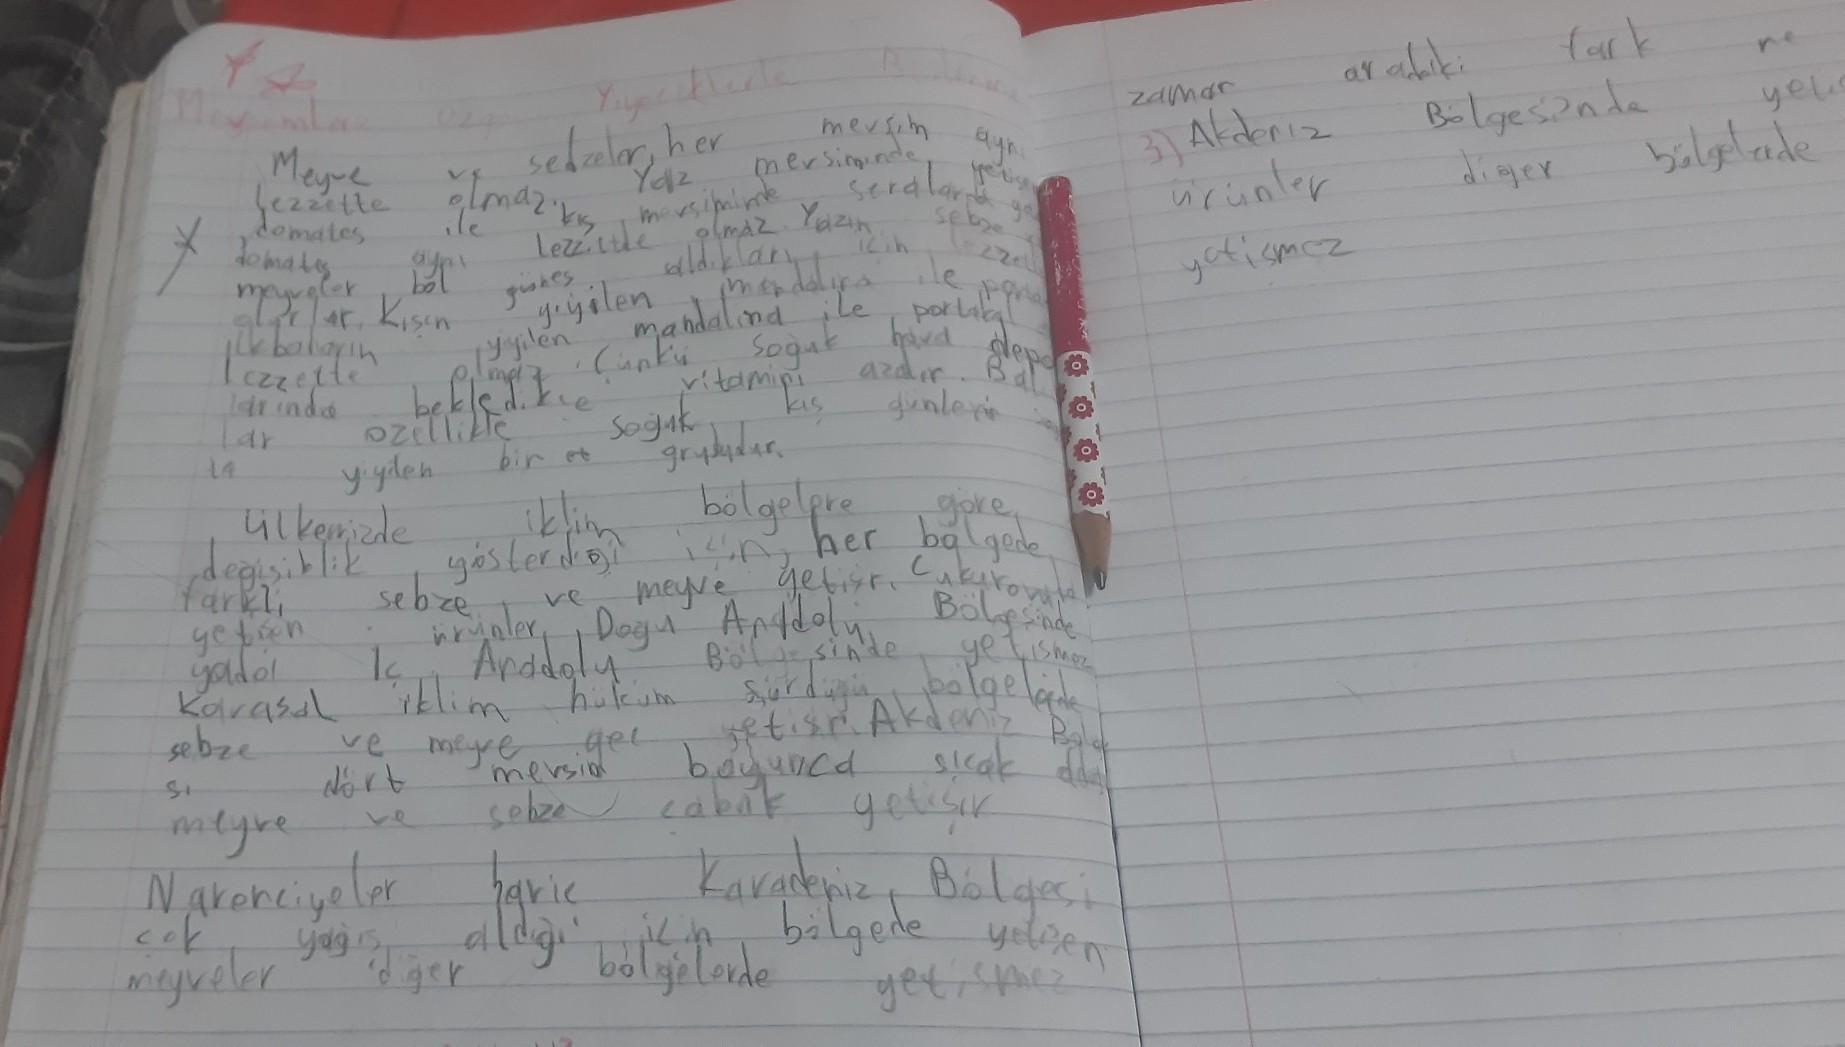 Yiyeceklerle
Meyve ve sebzeler, her mevsim ayn
lezzette olmaz. Yaz mersiminde yetise
domates ile kıs mevsiminde seralarda
domates aynı lezzette olmaz. Yazın sebze
meyveler bol günes aldıkları icin lezzetli
olurlar. Kısın yiyilen mandalina ile
ilkbaharın yiyilen mandalina ile portakal
lezzette olmaz. Cünkü soguk hava depo
larında bekledikce vitamini azalır. Bal
lar özellikle soguk kıs günlerin
da yiyilen bir et grubudur.
Ülkemizde iklim bölgelere göre
degisiblik gösterdigi icin, her bölgede
farklı sebze ve meyve yetisr. Cukurovada
yetisen ürünler, Dogu Anadolu Bölgesinde
yadal Ic Anadolu Bölgesinde yetismez
Karasal iklim hüküm sürdügü bölgelerde
sebze ve meyve gec yetisr. Akdeniz Bölge
si dört mevsim boyunca sıcak
meyve ve sebze cabuk yetisir
Narenciyeler haric Karadeniz Bölgesi
cok yagıs aldıgı icin bölgede yetisen
meyveler diger bölgelerde yetismez
zaman aradaki fark ne
3) Akdeniz Bölgesinde yetis
ürünler diger bölgelerde
yetismez